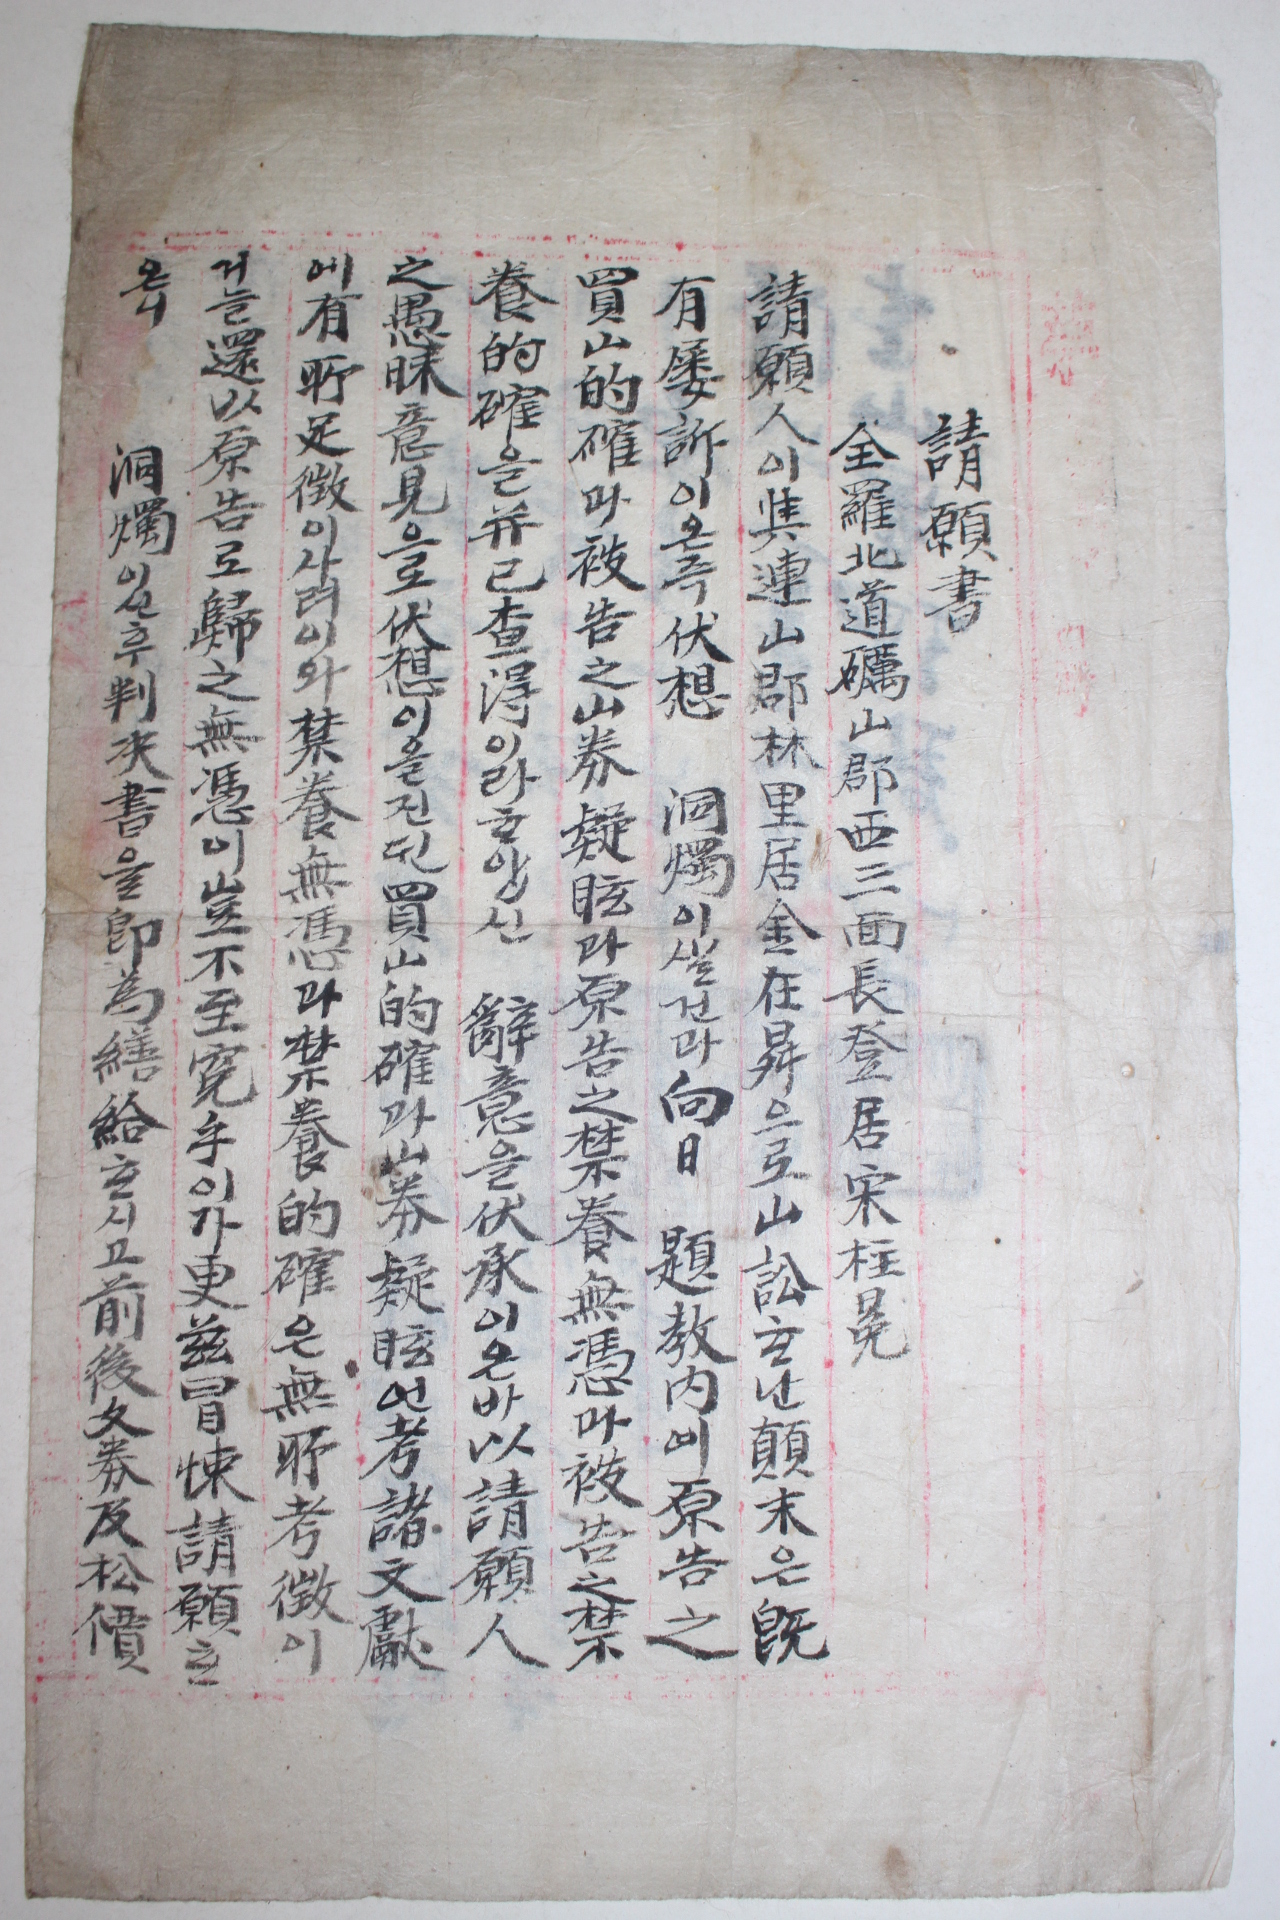 請願書
全羅北道礪山郡西三面長登居宋柱冕
請願人이與連山郡林里居金在昇으로山訟ᄒᆞᄂᆞᆫ顚末은旣
有屢訴이온즉伏想 洞燭이실건과向日 題敎內ᄋᆡ原告之
買山的確과被告之山券疑眩과原告之禁養無憑과被告之禁
養的確을並已査得이라ᄒᆞ압신 辭意을伏承이온바以請願人
之愚昧意見으로伏想이올진ᄃᆡᆫ買山的確과山券疑眩언考諸文獻
에有所足徵이사려이와禁養無憑과禁養的確은無所考徵이
거늘還以原告로歸之無憑이豈不至寃乎이가更玆冒悚請願ᄒᆞ
온니 洞燭이신후判决書을卽爲繕給ᄒᆞ시고前後文券及松價